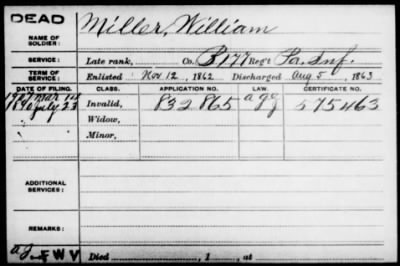 DEAD
NAME OF SOLDIER: Miller, William
SERVICE: Late rank, Co. B 177 Reg't Pa. Inf.
TERM OF SERVICE: Enlisted Nov. 12, 1862 Discharged Aug 5, 1863
DATE OF FILING. CLASS. APPLICATION NO. LAW. CERTIFICATE NO.
1890 July 23 Invalid, 832865 575463
Widow,
Minor,
ADDITIONAL SERVICES:
REMARKS:
F W V Died , 1 , at